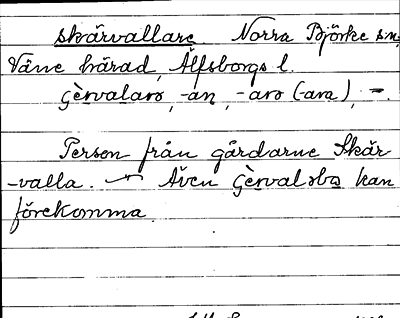 skärvallare Norra Björke sn,
Väne härad, Älfsborgs l.
gèrvalarə, -ən, -arə (-ara), =.
Person från gårdarne Skär
-valla. — Även gèrvalsbə kan
förekomma.